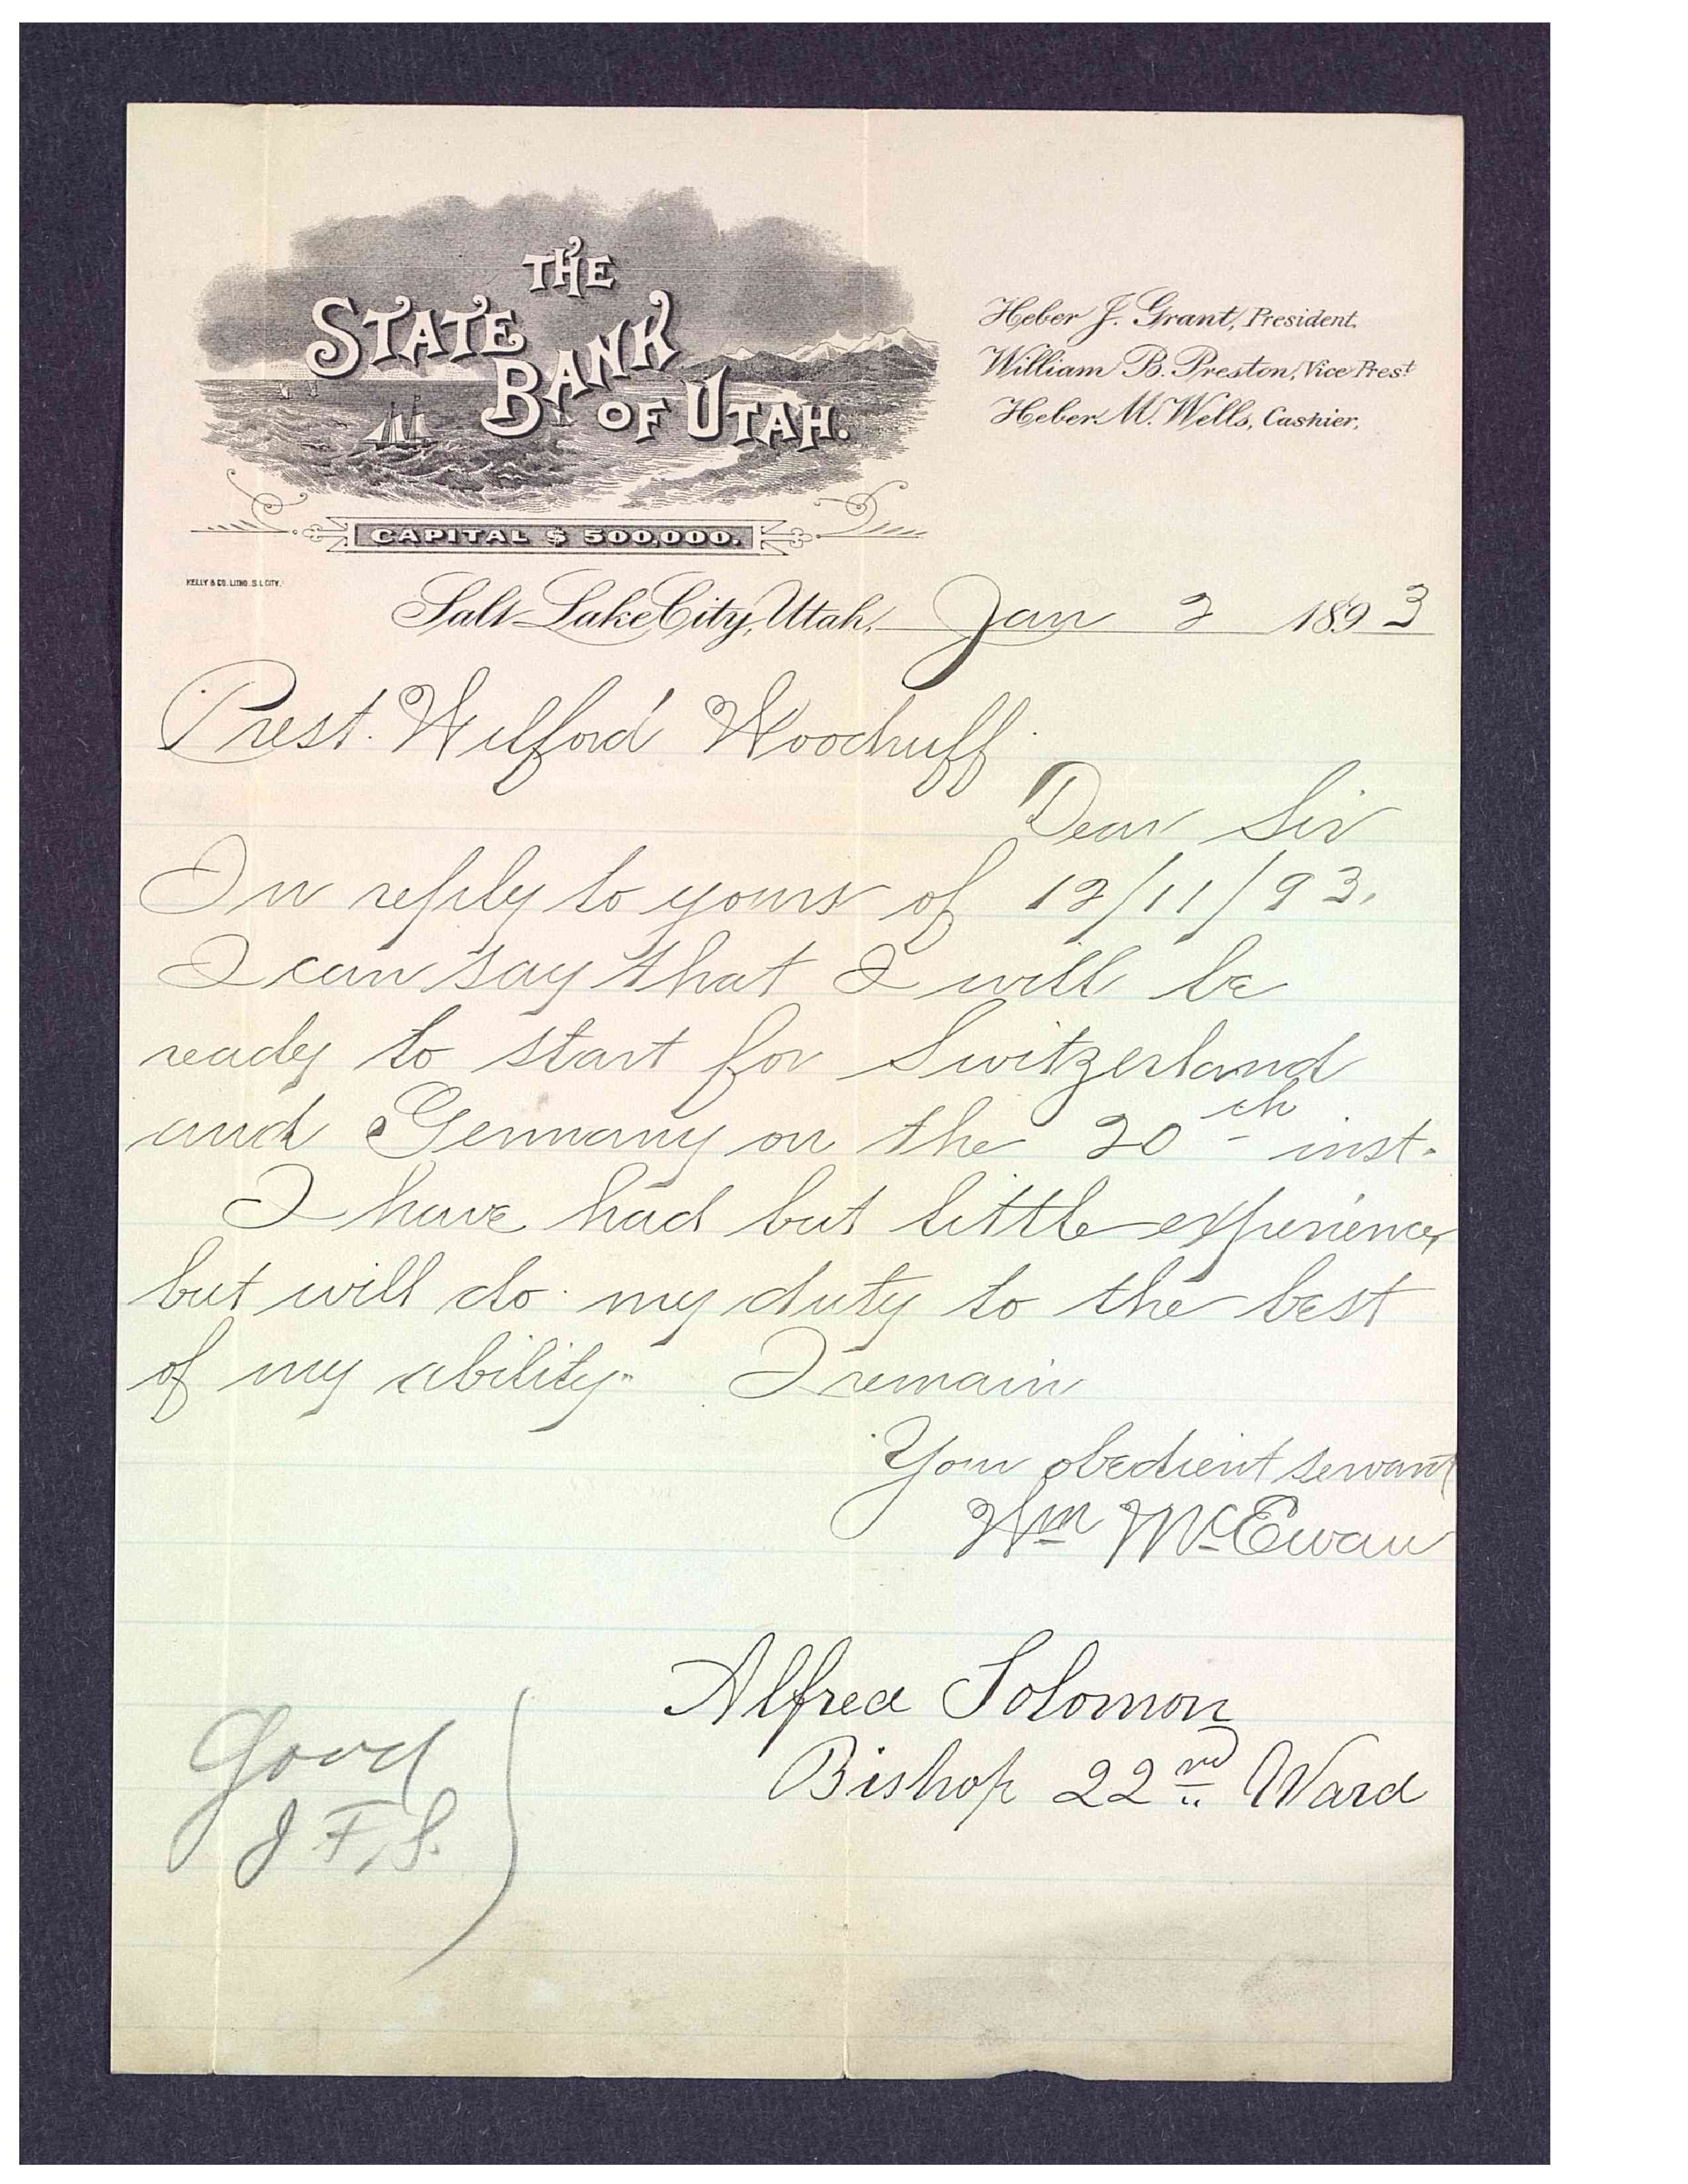 THE
STATE
BANK
OF UTAH.
CAPITAL $ 500,000.
KELLY & CO. LITHO. S.L. CITY.
Heber J. Grant, President.
William B. Preston, Vice Prest
Heber M. Wells, Cashier.
Salt Lake City, Utah, Jan 2 1893
Prest. Wilford Woodruff.
Dear Sir
In reply to yours of 12/11/93.
I can say that I will be
ready to start for Switzerland
and Germany on the 20th inst.
I have had but little experience,
but will do my duty to the best
of my ability. I remain
Your obedient servant
Wm McEwan
Alfred Solomon
Bishop 22nd Ward
Good
J F. S.